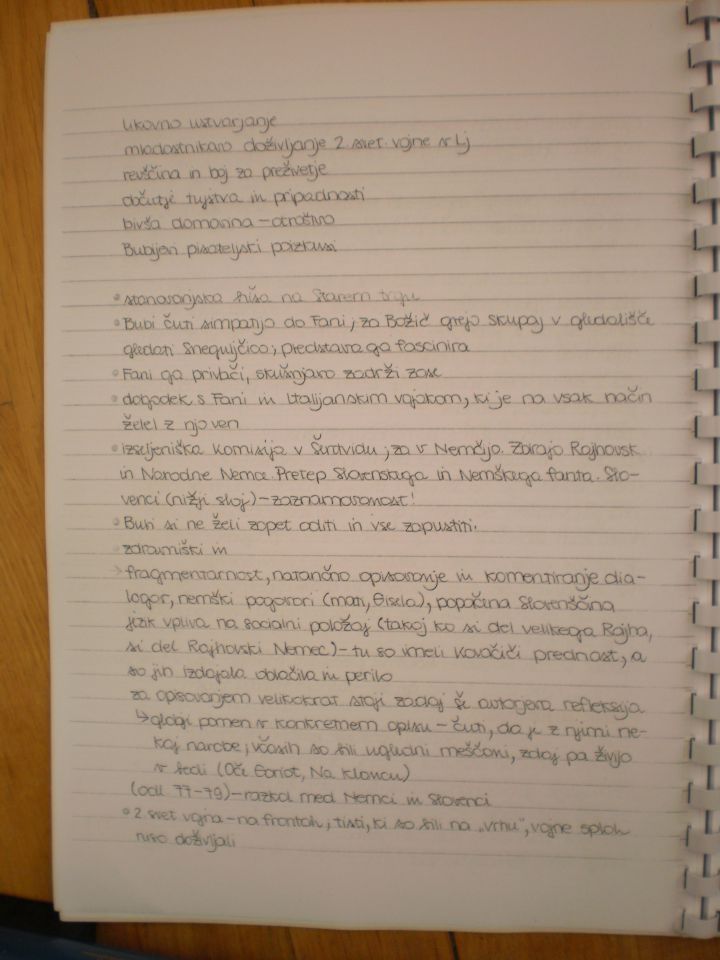 likovno ustvarjanje
mladostnikovo doživljanje 2. svet. vojne v Lj
revščina in boj za preživetje
občutje tujstva in pripadnosti
bivša domovina - otroštvo
Bubijevi pisateljski poizkusi
• stanovanjska hiša na Starem trgu
• Bubi čuti simpatijo do Fani; za Božič grejo skupaj v gledališče
gledati Sneguljčico; predstava ga fascinira
• Fani ga privlači, skušnjavo zadrži zase
• dogodek s Fani in Italijanskim vojakom, ki je na vsak način
želel z njo ven
• izseljeniška komisija v Šentvidu; za v Nemčijo. Zbirajo Rajhovsk
in Narodne Nemce. Pretep Slovenskega in Nemškega fanta. Slo-
venci (nižji sloj) - zaznamovanost!
• Bubi si ne želi zopet oditi in vse zapustiti.
• zdravniški in
> fragmentarnost, natančno opisovanje in komentiranje dia-
logov, nemški pogovori (mati, Gisela), popačena Slovenščina
jezik vpliva na socialni položaj (takoj ko si del velikega Rajha,
si del Rajhovski Nemec) - tu so imeli Kovačiči prednost, a
so jih izdajala oblačila in perilo
za opisovanjem velikokrat stoji zadaj še avtorjeva refleksija
↳ globji pomen v konkretnem opisu - čuti, da je z njimi ne-
kaj narobe; včasih so bili ugledni meščani, zdaj pa živijo
v bedi (Oče Goriot, Na klancu)
(odl. 77-79) - razkol med Nemci in Slovenci
• 2. svet. vojna - na frontah; tisti, ki so bili na „vrhu", vojne sploh
niso doživljali